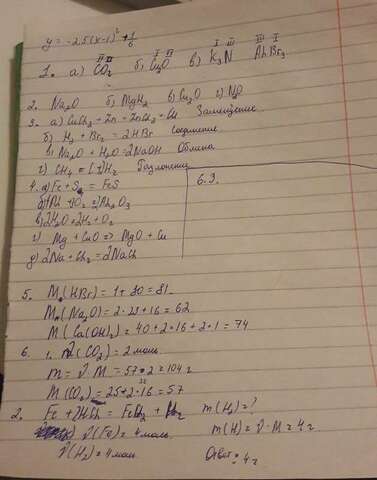 y = -2,5(x-1)² + 1/6
1. а) CO₂ б) Cu₂O в) K₃N AlBr₃
2. Na₂O б) MgH₂ в) Cu₂O г)
3. а) CuCl₂ + Zn = ZnCl₂ + Cu Замещение
б) H₂ + Br₂ = 2HBr Соединение
в) Na₂O + H₂O = 2NaOH Обмена
г) CH₄ = H₂ Разложение
4. а) Fe + S = FeS 6.3.
б)
в) 2H₂O = 2H₂ + O₂
г) Mg + CuO => MgO + Cu
д) 2Na + Cl₂ = 2NaCl
5. M(HBr) = 1 + 80 = 81
M(Na₂O) = 2·23 + 16 = 62
M(Ca(OH)₂) = 40 + 2·16 + 2·1 = 74
6. 1. (CO₂) = 2 моль
m = ν·M = 57·2 = 104 г
M(CO₂) = 25 + 2·16 = 57
2. Fe + 2HCl = FeCl₂ + H₂ m(H₂) = ?
ν(Fe) = 4 моль m(H) = ν·M = 4 г
ν(H₂) = 4 моль Ответ: 4 г